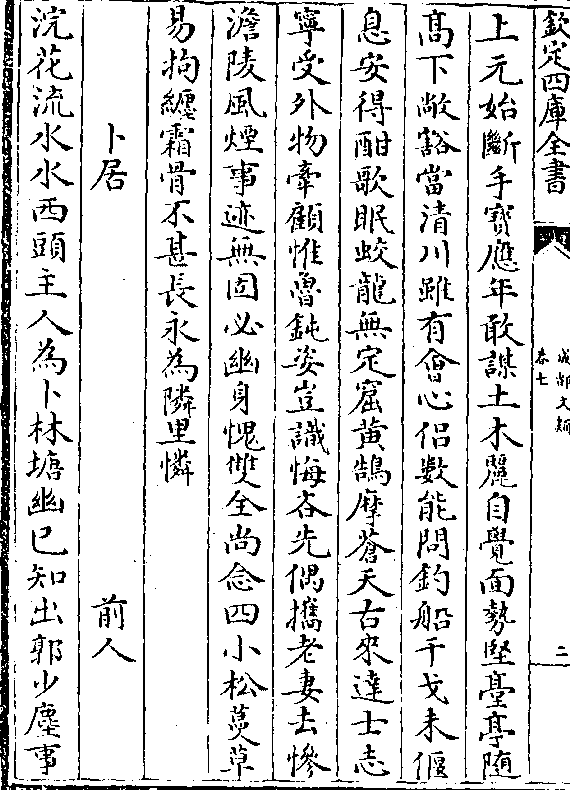 欽定四庫全書
成都文類
卷七
二
上元始斷手寶應年敢謀土木麗自覺面勢堅臺亭隨
髙下敞豁當清川雖有會心侣數能同釣船干戈未偃
息安得酣歌眠蛟龍無定窟黄鵠摩蒼天古來達士志
寧受外物牽顧惟魯鈍姿豈識悔吝先偶攜老妻去慘
澹陵風煙事迹無固必幽身愧雙全尚念四小松蔓草
易拘纏霜骨不甚長永為隣里憐
卜居 前人
浣花流水水西頭主人為卜林塘幽已知出郭少塵事